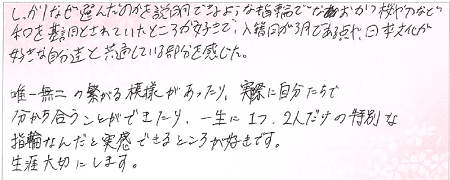 しっかりなぜ選んだのかを説明できるような指輪でなおかつ桜や和など
和を基調とされていたところが好きで、入籍日が3月である点や、日本文化が
好きな自分達と共通している部分を感じた。
唯一無二の繋がる模様があったり、実際に自分たちで
分かち合うことができたり、一生に1つ、2人だけの特別な
指輪なんだと実感できるところが好きです。
生涯大切にします。